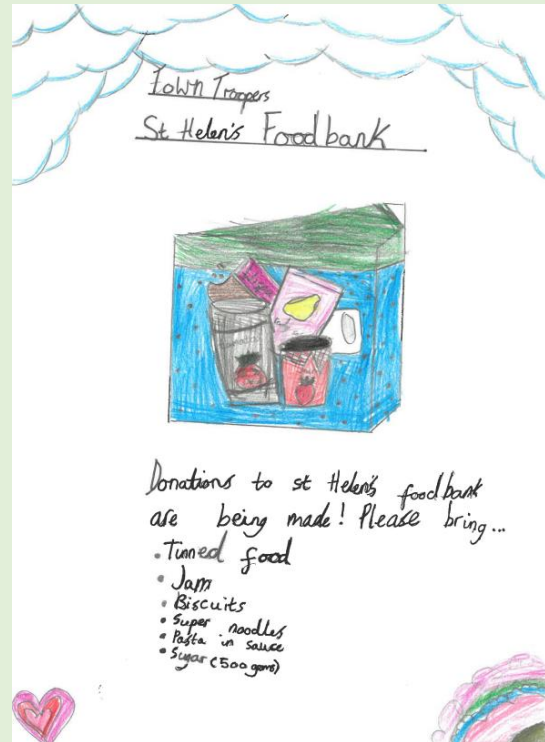 Town Troopers
St Helen's Foodbank
Donations to st Helen's foodbank
are being made! Please bring...
• Tinned food
• Jam
• Biscuits
• Super noodles
• Pasta in sauce
• Sugar (500 gams)